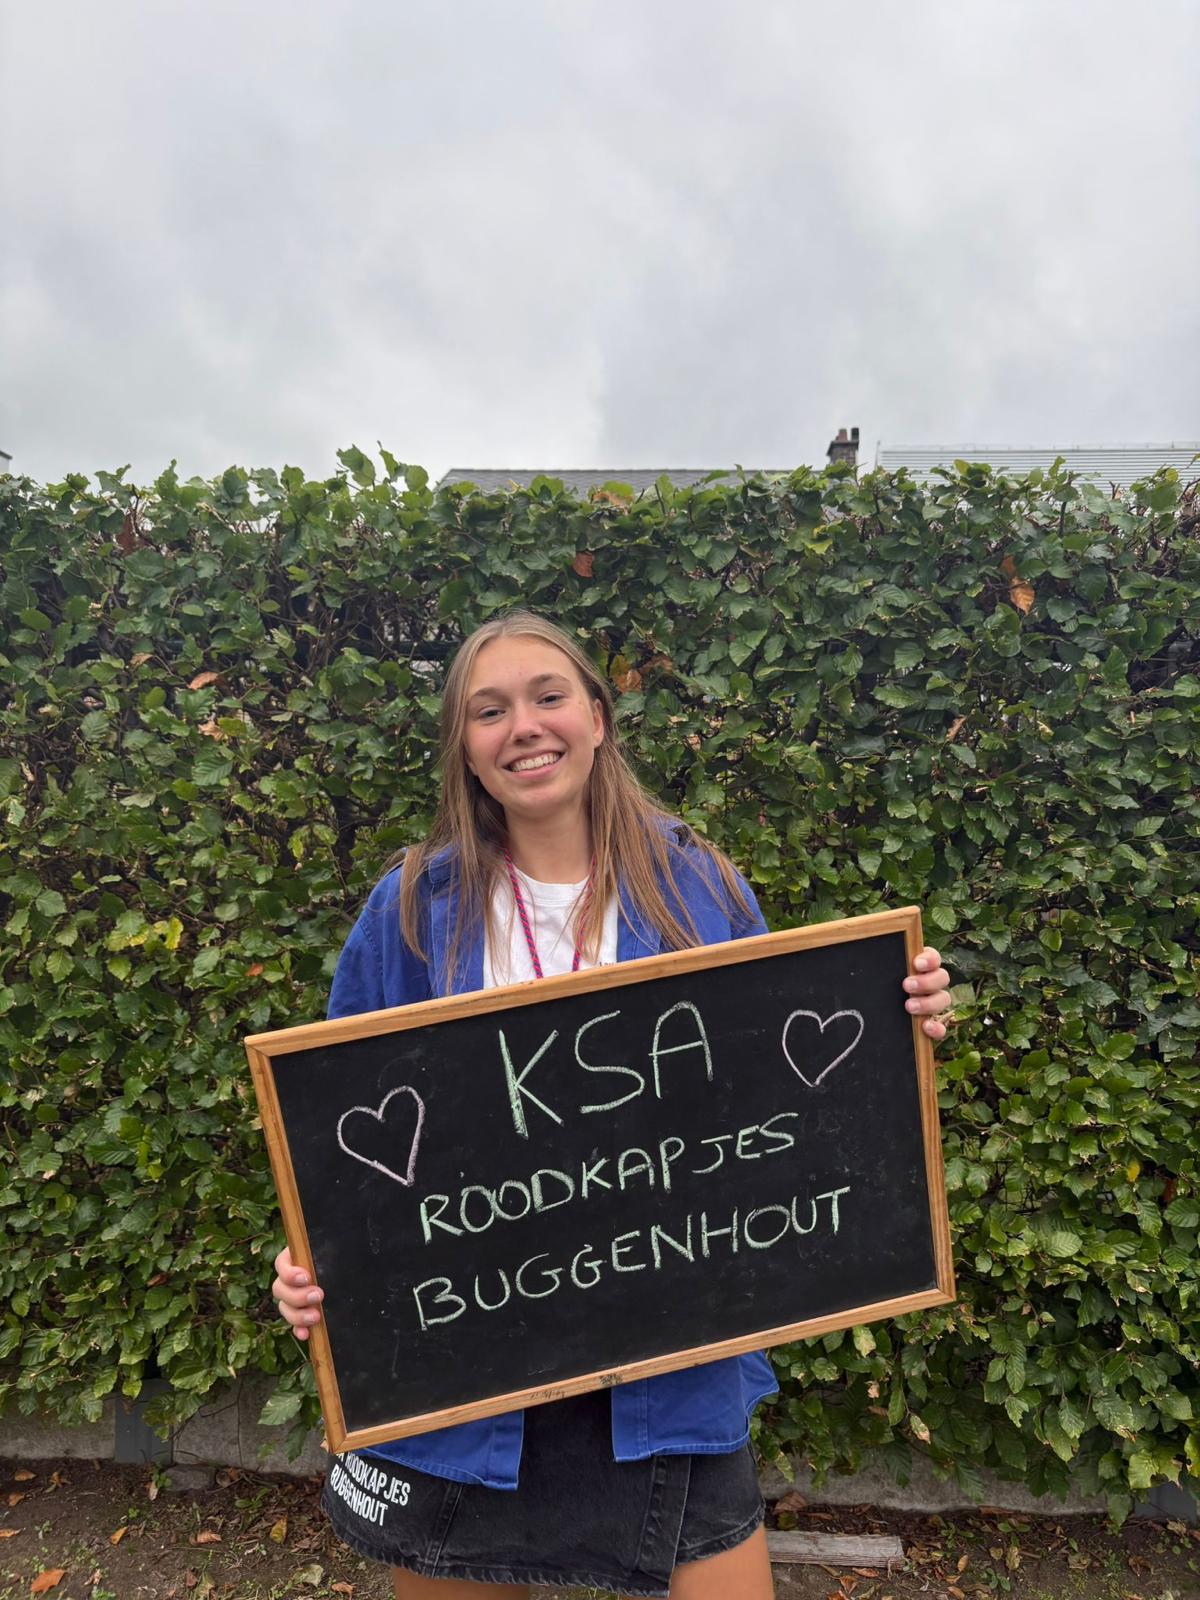 KSA
ROODKAPJES
BUGGENHOUT
ROODKAPJES
BUGGENHOUT